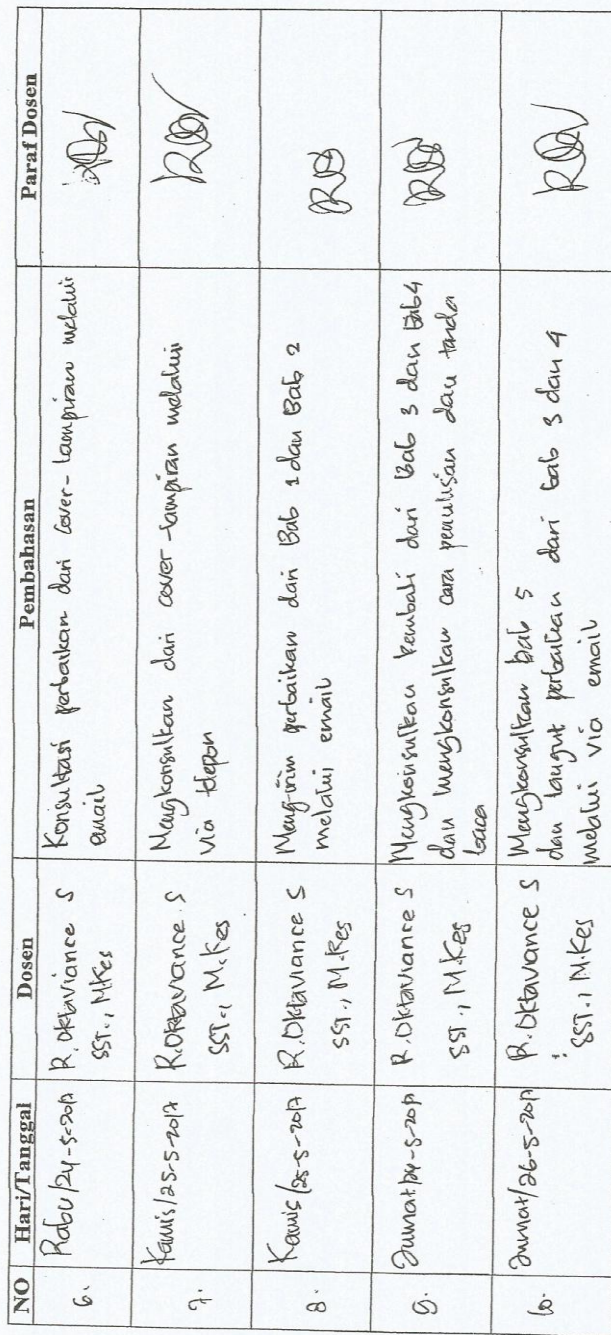 NO Hari/Tanggal Dosen Pembahasan Paraf Dosen
6. Rabu/24-5-2017 R. Oktaviance S Konsultasi perbaikan dari Cover-Lampiran melalui
SST., M.Kes email
7. Kamis/25-5-2017 R. Oktaviance S Mengkonsulkan dari cover-Lampiran melalui
SST., M.Kes via telepon
8. Kamis/25-5-2017 R. Oktaviance S Mengirim perbaikan dari Bab 1 dan Bab 2
SST., M.Kes melalui email
9. Jumat/24-5-2017 R. Oktaviance S Mengkonsulkan kembali dari Bab 3 dan Bab 4
SST., M.Kes dan mengkonsulkan cara penulisan dan tanda
baca
10. Jumat/26-5-2017 R. Oktaviance S Mengkonsulkan bab 5
SST., M.Kes dan lanjut perbaikan dari bab 3 dan 4
melalui via email